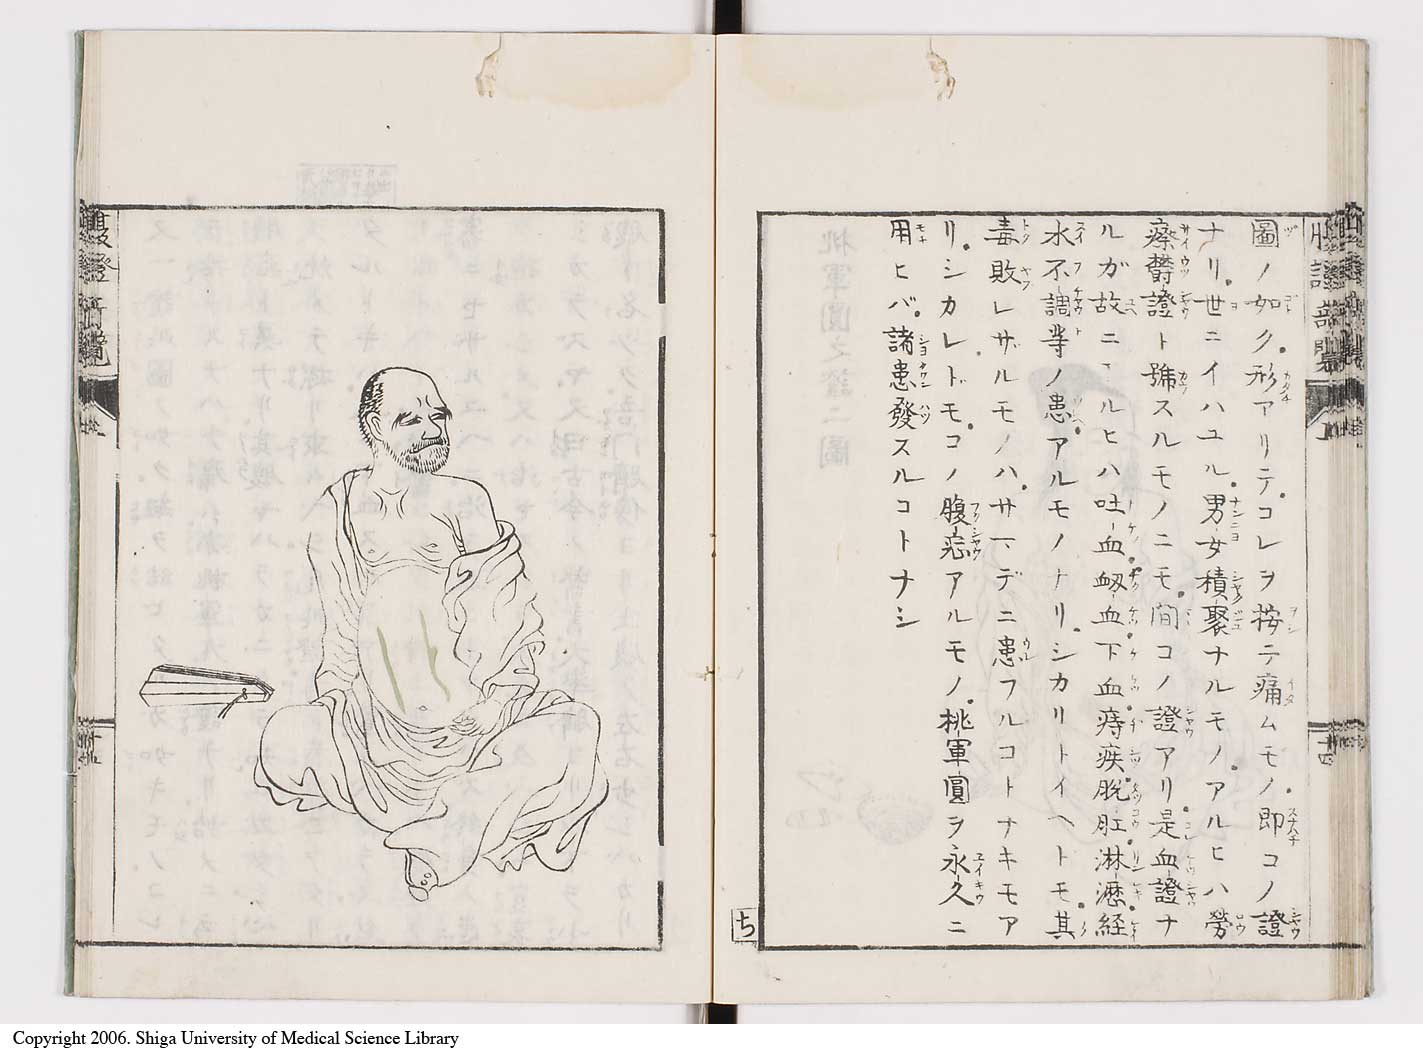 圖ノ如ク形アリテコレヲ按テ痛ムモノ即コノ證
ナリ世ニイハユル男女積聚ナルモノアルヒハ勞
瘵欝證ト號スルモノニモ間コノ證アリ是血證ナ
ルガ故ニアルヒハ吐血衂血下血痔疾脱肛淋瀝経
水不調等ノ患アルモノナリシカリトイヘトモ其
毒敗レザルモノハサマデニ患フルコトナキモア
リシカレドモコノ腹忘アルモノ桃軍圓ヲ永久ニ
用ヒバ諸患發スルコトナシ
ち
Copyright 2006. Shiga University of Medical Science Library